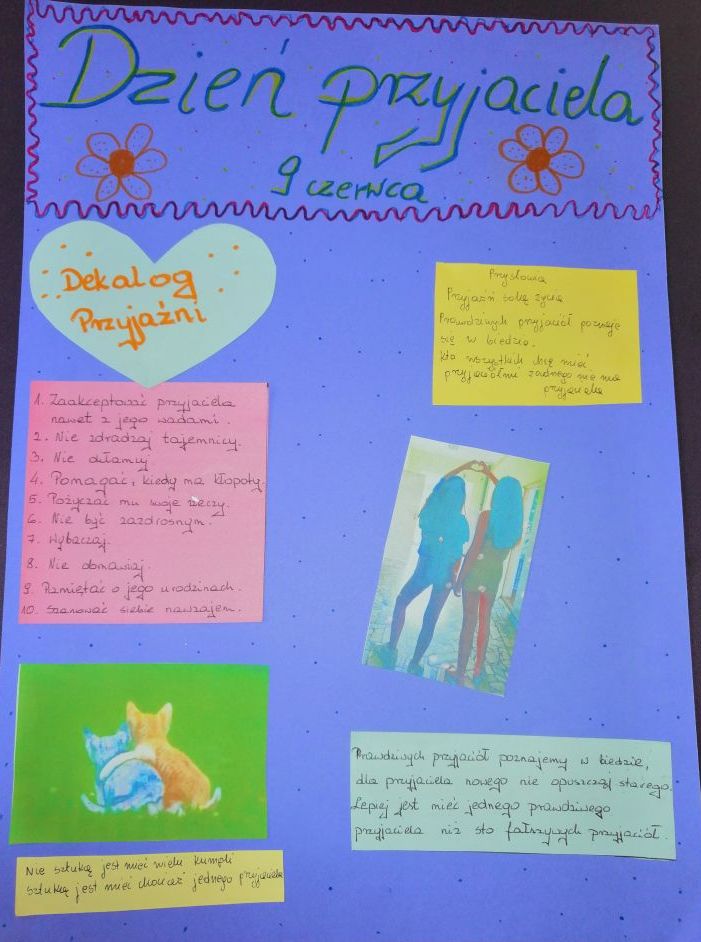 Dzień przyjaciela
9 czerwca
Dekalog
Przyjaźni
1. Zaakceptować przyjaciela
nawet z jego wadami.
2. Nie zdradzaj tajemnicy.
3. Nie kłamcy
4. Pomagać, kiedy ma kłopoty.
5. Pożyczać mu swoje rzeczy.
6. Nie być zazdrosnym.
7. Wybaczaj.
8. Nie obmawiaj.
9. Pamiętać o jego urodzinach.
10. Szanować siebie nawzajem.
Przysłowia
Przyjaźń solą życia
Prawdziwych przyjaciół poznaje
się w biedzie.
Kto wszystkich chce mieć
przyjaciółmi żadnego nie ma
przyjaciela
Prawdziwych przyjaciół poznajemy w biedzie,
dla przyjaciela nowego nie opuszczaj starego.
Lepiej jest mieć jednego prawdziwego
przyjaciela niż sto fałszywych przyjaciół.
Nie sztuką jest mieć wielu kumpli
sztuką jest mieć chociaż jednego przyjaciela